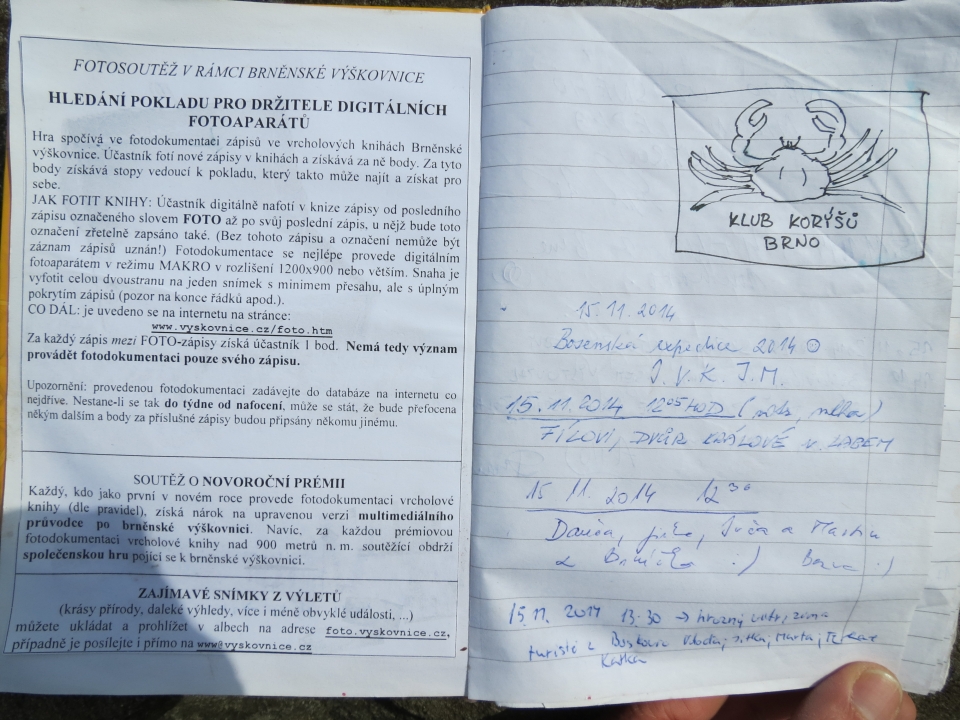 FOTOSOUTĚŽ V RÁMCI BRNĚNSKÉ VÝŠKOVNICE
HLEDÁNÍ POKLADU PRO DRŽITELE DIGITÁLNÍCH
FOTOAPARÁTŮ
Hra spočívá ve fotodokumentaci zápisů ve vrcholových knihách Brněnské
výškovnice. Účastník fotí nové zápisy v knihách a získává za ně body. Za tyto
body získává stopy vedoucí k pokladu, který takto může najít a získat pro
sebe.
JAK FOTIT KNIHY: Účastník digitálně nafotí v knize zápisy od posledního
zápisu označeného slovem FOTO až po svůj poslední zápis, u nějž bude toto
označení zřetelně zapsáno také. (Bez tohoto zápisu a označení nemůže být
záznam zápisů uznán!) Fotodokumentace se nejlépe provede digitálním
fotoaparátem v režimu MAKRO v rozlišení 1200x900 nebo větším. Snaha je
vyfotit celou dvoustranu na jeden snímek s minimem přesahu, ale s úplným
pokrytím zápisů (pozor na konce řádků apod.).
CO DÁL: je uvedeno se na internetu na stránce:
www.vyskovnice.cz/foto.htm
Za každý zápis mezi FOTO-zápisy získá účastník 1 bod. Nemá tedy význam
provádět fotodokumentaci pouze svého zápisu.
Upozornění: provedenou fotodokumentaci zadávejte do databáze na internetu co
nejdříve. Nestane-li se tak do týdne od nafocení, může se stát, že bude přefocena
někým dalším a body za příslušné zápisy budou připsány někomu jinému.
SOUTĚŽ O NOVOROČNÍ PRÉMII
Každý, kdo jako první v novém roce provede fotodokumentaci vrcholové
knihy (dle pravidel), získá nárok na upravenou verzi multimediálního
průvodce po brněnské výškovnici. Navíc, za každou prémiovou
fotodokumentaci vrcholové knihy nad 900 metrů n. m. soutěžící obdrží
společenskou hru pojící se k brněnské výškovnici.
ZAJÍMAVÉ SNÍMKY Z VÝLETŮ
(krásy přírody, daleké výhledy, více i méně obvyklé události, ...)
můžete ukládat a prohlížet v albech na adrese foto.vyskovnice.cz,
případně je posílejte i přímo na www@vyskovnice.cz
KLUB KORÝŠŮ
BRNO
15.11.2014
Bosenská expedice 2014
J. V. K. J. M.
15.11.2014 12⁰⁵ HOD
FÍLOVI, DVŮR KRÁLOVÉ n. LABEM
15 11. 2014 12³⁰
Danča, Jirka, a Martin
z
15.11. 2014 13:30 → hrozný vítr, zima
turisté z Boskovic Jitka, Marta,
Katka